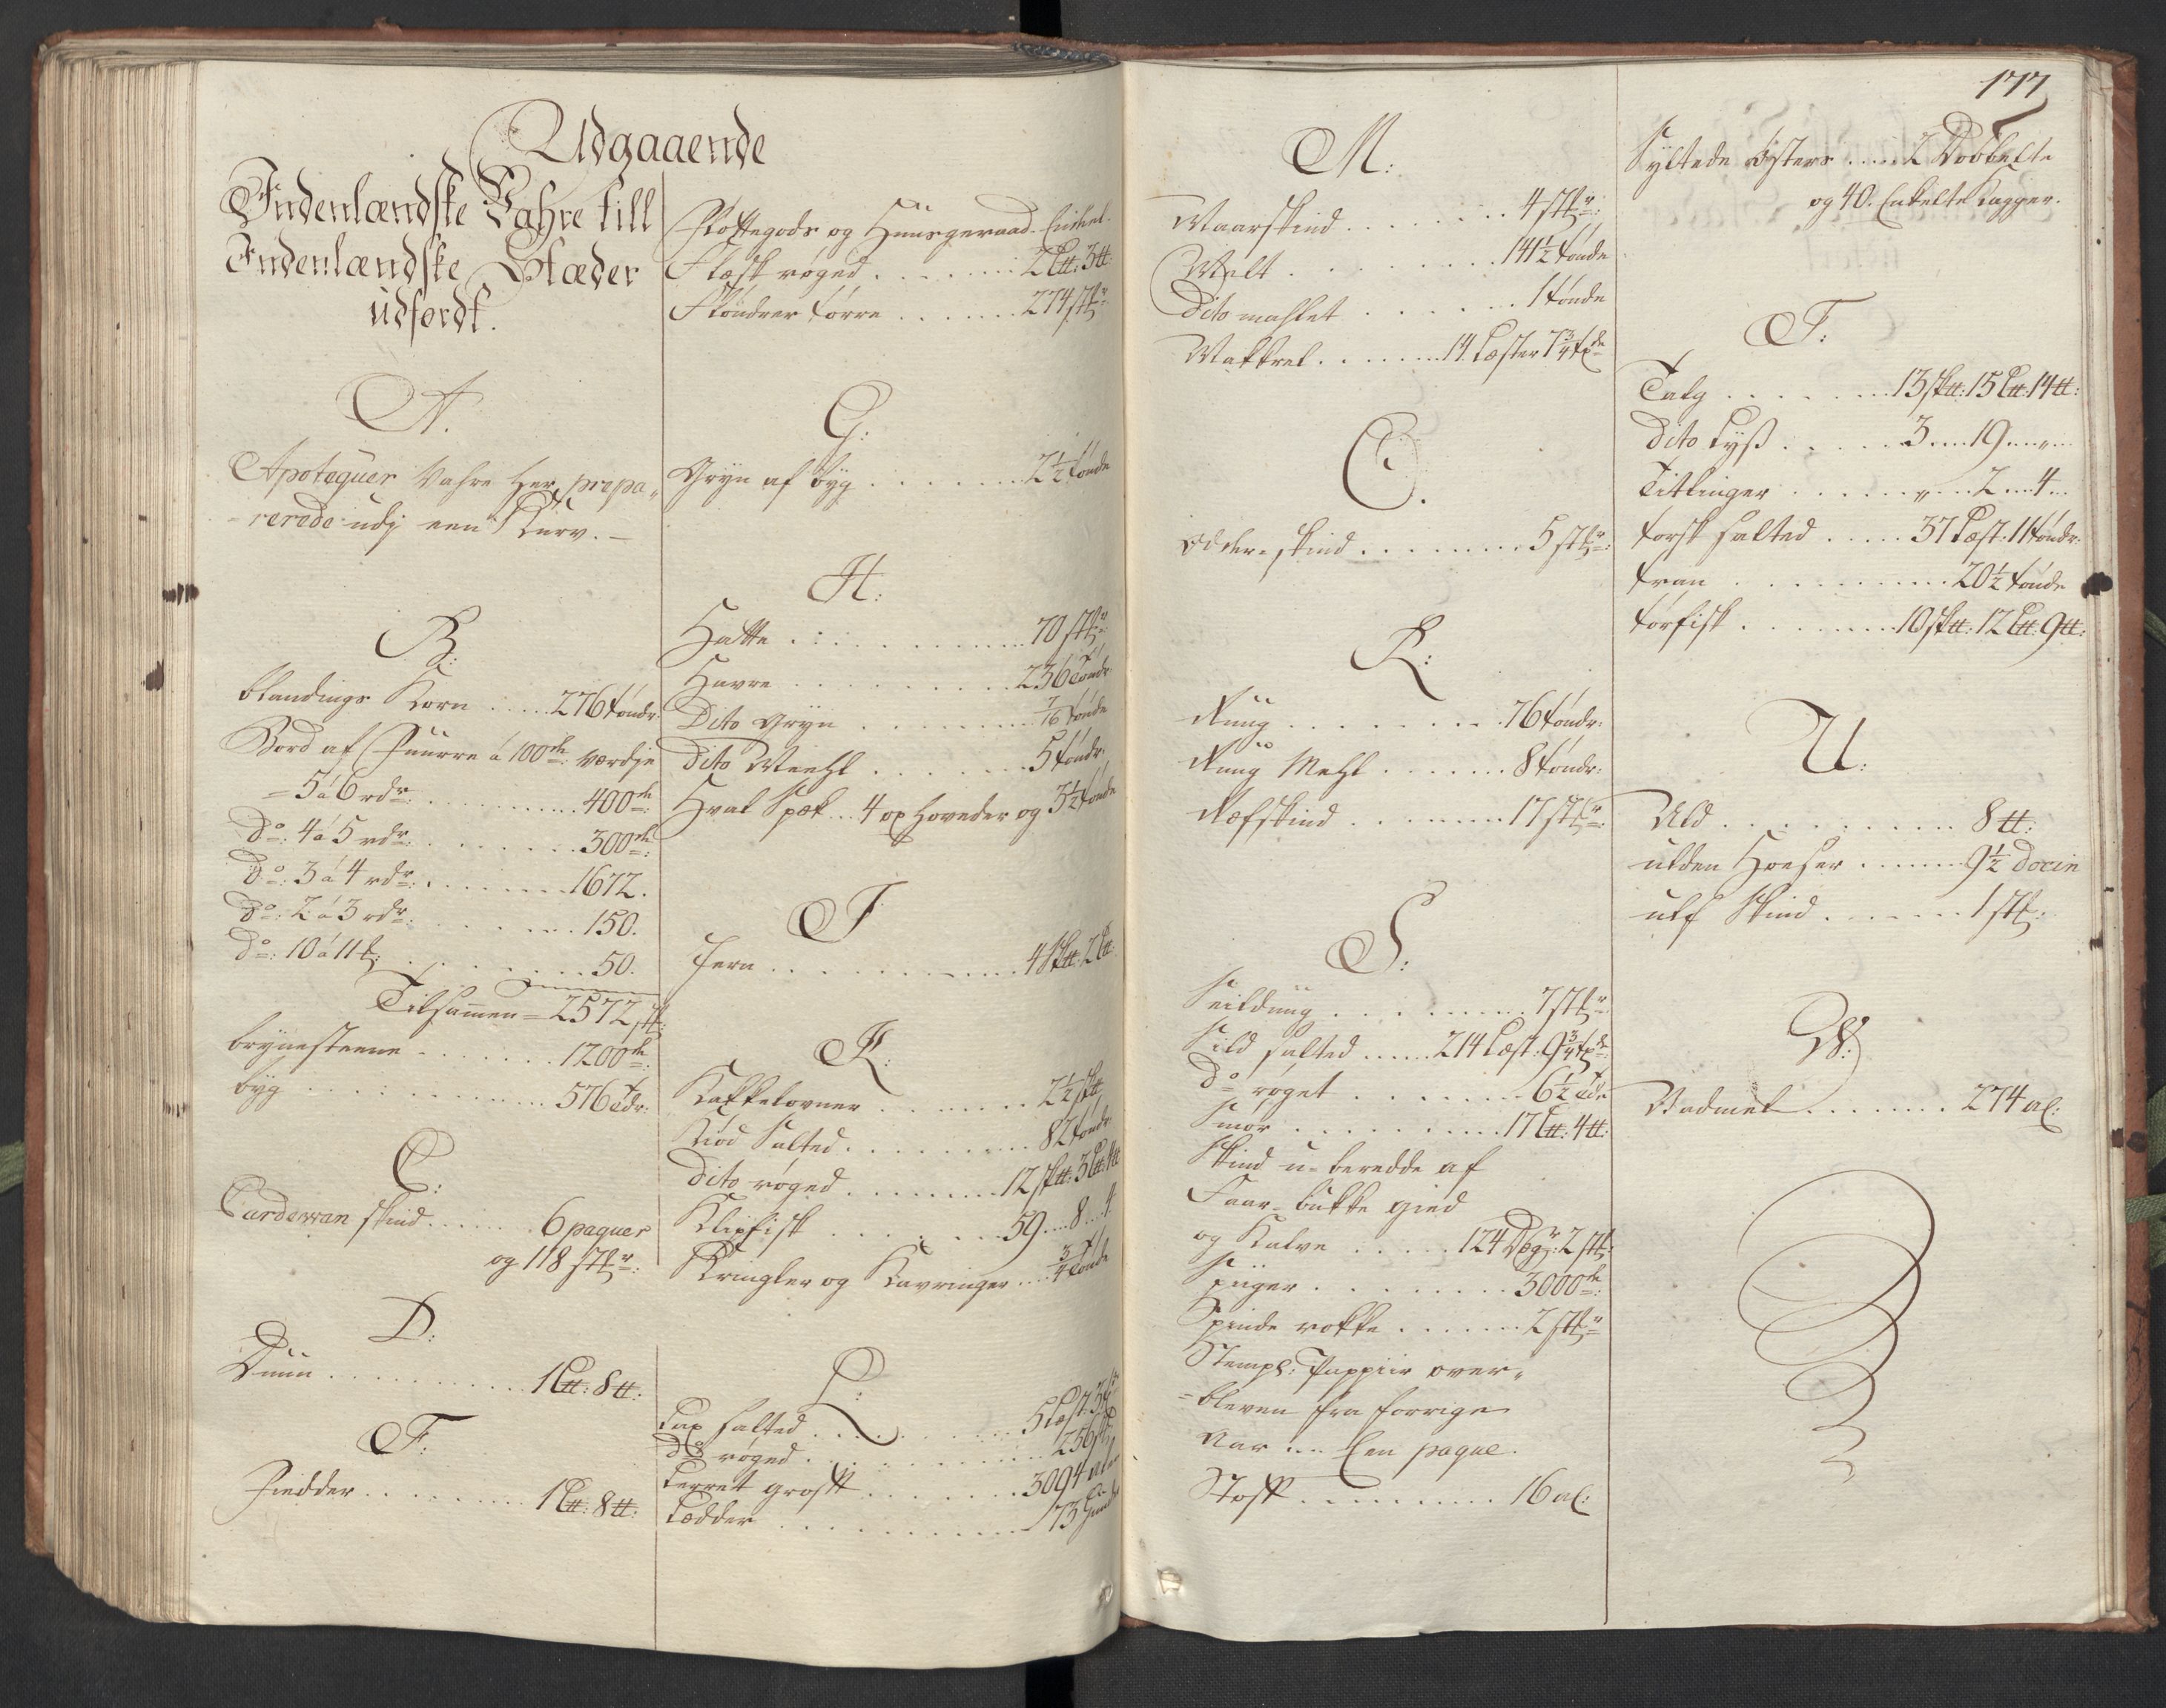 Udgaaende
Indenlandske Vahre till
Indenlandske Stæder
udfordt.
A.
Apotequer Vahre her prepa„
=rerede udj een Kurv. —
B:
blandings Korn ..... 276 tønder
Bord af Fuurre á 100de værdje
= 5 á 6 rdr: ........... 400de:
Do: 4 á 5 rdr: ........... 300de:
Do: 3 á 4 rdr: ......... 1672.
Do: 2 á 3 rdr: ......... 150.
Do: 10 á 11 ........... 50.
Tilsammen = 2572 st:
brynesteene ....... 1200de:
byg ............... 576 tdr:
C:
Cardewan skind ...... 6 paquer
og 118 stkr:
D:
Duun .......... 1 L℔: 8 ℔:
F:
Fiedder ......... 1 L℔: 8 ℔:
Fløttegods og Huusgeraad. Enchel.
Flesk røged ........ 2 L℔: 3 ℔:
Flöndrer tørre ....... 274 stkr
G:
Gryn af byg ........ 2 1/2 tønde
H:
Hatte ............ 70 stkr:
Havre ............ 236 tøndr:
Dito Gryn ......... 7/16 tønde
Dito Meehl ........ 5 tøndr:
Hval Spek ... 4 oxhoveder og 3 1/2 tønde
I
Jern ............ 4 Sk℔: 2 L℔
K:
Kakkelovner ....... 2 1/2 Sk℔
Kiød Salted ......... 82 tøndr:
Dito røged ......... 12 Sk℔: 3 L℔: 4 ℔
Klipfisk ......... 59 .... 8 .... 4
Kringler og Kavringer .... 3/4 tønde
L:
Lax salted ......... 5 Lest:
Do røged ........... 256
Lerret groft ........ 3094
Lædder ............ 173
M:
Maarskind ......... 4 stkr:
Malt ........... 141 1/2 tønde
Dito mahlet ...... 1 tønde
Makkrel ....... 14 Læster 7 3/4 tde
O.
Odder=skind ........ 5 stkr:
R:
Ruug ......... 76 tøndr:
Ruug Mehl ....... 8 tøndr:
Refskind ........ 17 stkr:
S:
Seildüug ......... 7 stkr
Sild salted ..... 214 Læst: 9 3/4 tde:
Do røget ........ 6 1/2 tde
Smør .......... 17 L℔: 4 ℔:
Skind u=beredde af
Faar= bukke gied
og Kalve ..... 124 Degr: 2 stk:
Spiiger ......... 3000de:
Spinde rokke ...... 2 stkr
Stempl: Pappiir over„
=bleven fra forrige
Aar .... Een paque.
Stoff ........... 16 al:
177
Syltede Østers .... 2 Dobbelte
og 40. Enkelte Kagger.
T:
Talg ....... 13 Sk℔: 15 L℔: 14 ℔:
Dito Lyß ..... 3 .... 19 .... „ ....
Titlinger ...... „ .... 2 .... 4 ...
torsk salted ..... 37 Læst: 11 tøndr:
tran .......... 20 1/2 tønde
torfisk ........ 10 Sk℔: 12 L℔: 9 ℔:
U:
Uld ........... 8 ℔:
ulden Hoeser ...... 9 1/2 Docin
ulf Skind ....... 1 stk:
W:
Vadmel ........ 274 al: